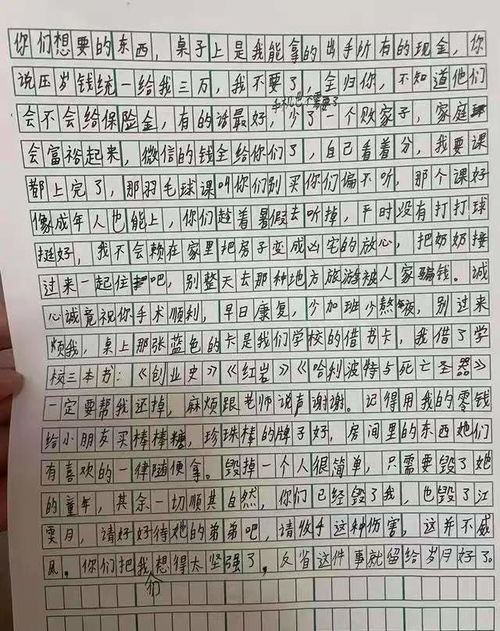 你们想要的东西，桌子上是我能拿的出手所有的现金，你
说压岁钱统一给我三万，我不要了，全归你，不知道他们
手机也不需要了
会不会给保险金，有的话最好，少了一个败家子，家庭
会富裕起来，微信的钱全给你们了，自己看着分，我要课
都上完了，那羽毛球课叫你们别买你们偏不听，那个课好
像成年人也能上，你们趁着暑假去听掉，平时没有打打球
挺好，我不会赖在家里把房子变成凶宅的放心，把奶奶接
过来一起住吧，别整天去那种地方旅游被人家骗钱。诚
心诚意祝你手术顺利，早日康复，少加班少熬夜，别过来
烦我，桌上那张蓝色的卡是我们学校的借书卡，我借了学
校三本书：《创业史》《红岩》《哈利波特与死亡圣器》
一定要帮我还掉，麻烦跟老师说声谢谢。记得用我的零钱
给小朋友买棒棒糖，珍珠棒的牌子好，房间里的东西她们
有喜欢的一律随便拿。毁掉一个人很简单，只需要毁了她
的童年，其余一切顺其自然，你们已经毁了我，也毁了江
雯月，请好好待她的弟弟吧，请收手这种伤害，这并不威
风，你们把我想得太坚强了，反省这件事就留给岁月好了。
们